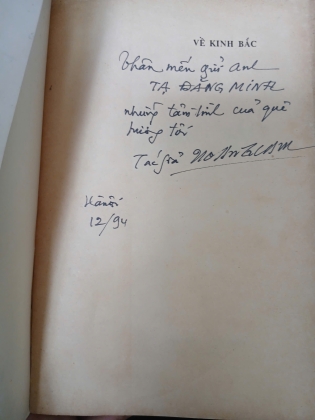 VỀ KINH BẮC
Thân mến gửi anh
TẠ ĐĂNG MINH
những tâm tình của quê
hương tôi
Tác giả
Hànội
12/94